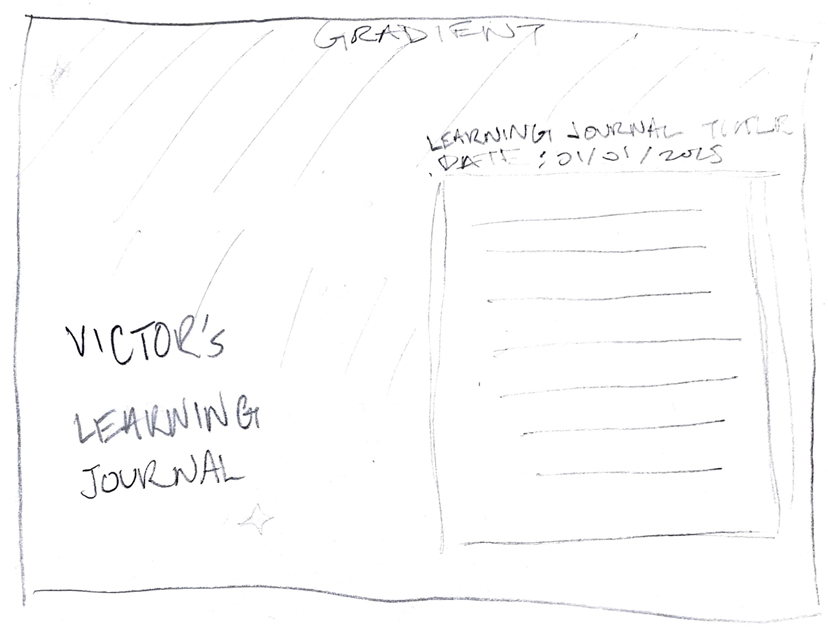 GRADIENT
LEARNING JOURNAL TITLE
DATE : 01/01/2025
VICTOR'S
LEARNING
JOURNAL